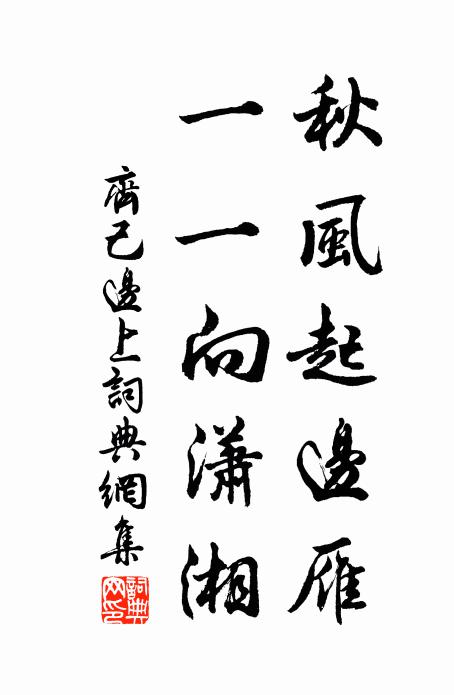 秋風起邊雁
一一向瀟湘
齊己邊上詞典網集
詞典網印